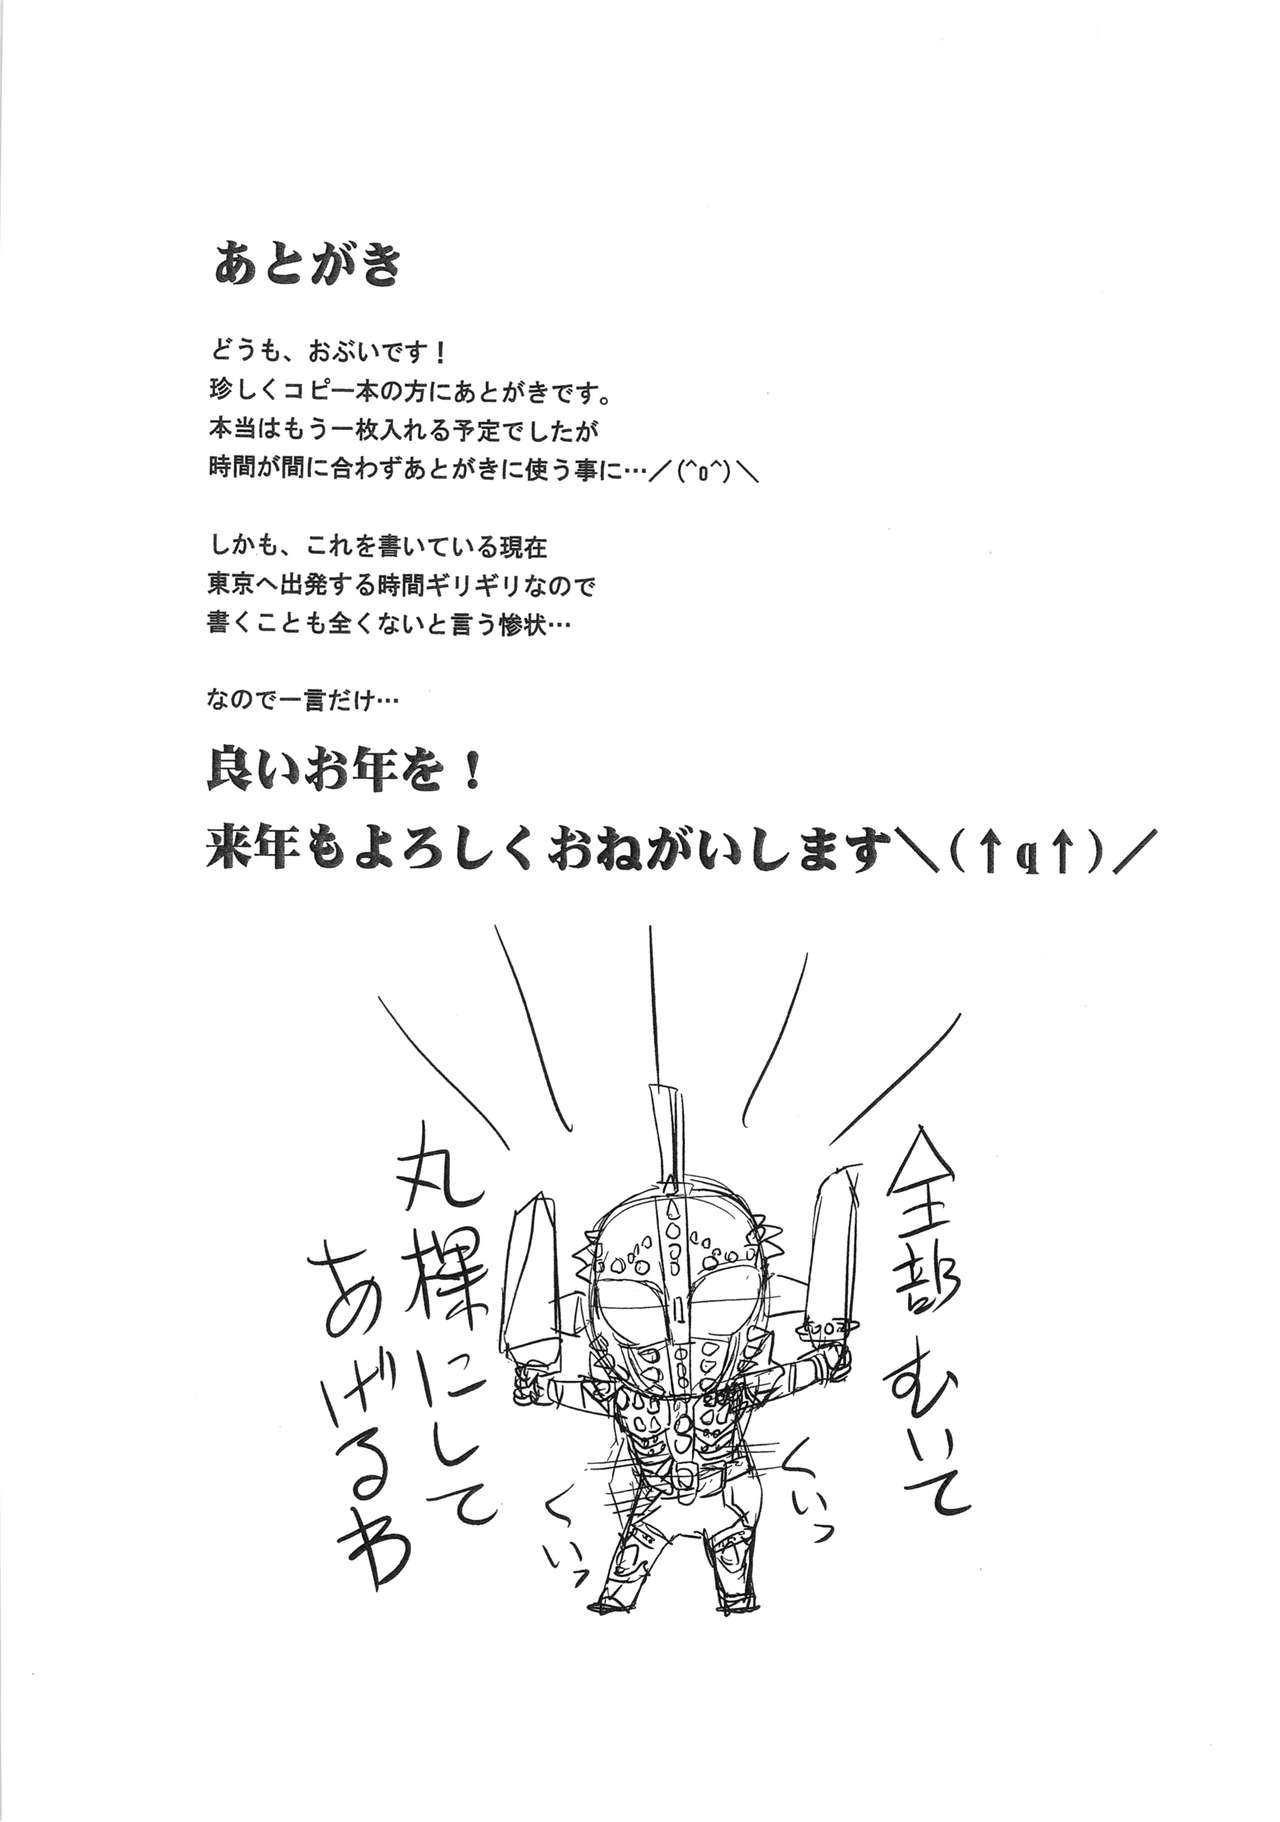 あとがき
どうも、おぶいです！
珍しくコピー本の方にあとがきです。
本当はもう一枚入れる予定でしたが
時間が間に合わずあとがきに使う事に…／(^o^)＼
しかも、これを書いている現在
東京へ出発する時間ギリギリなので
書くことも全くないと言う惨状…
なので一言だけ…
良いお年を！
来年もよろしくおねがいします＼(↑q↑)／
全部むいて
丸裸にして
あげるわ
くいっ
くいっ